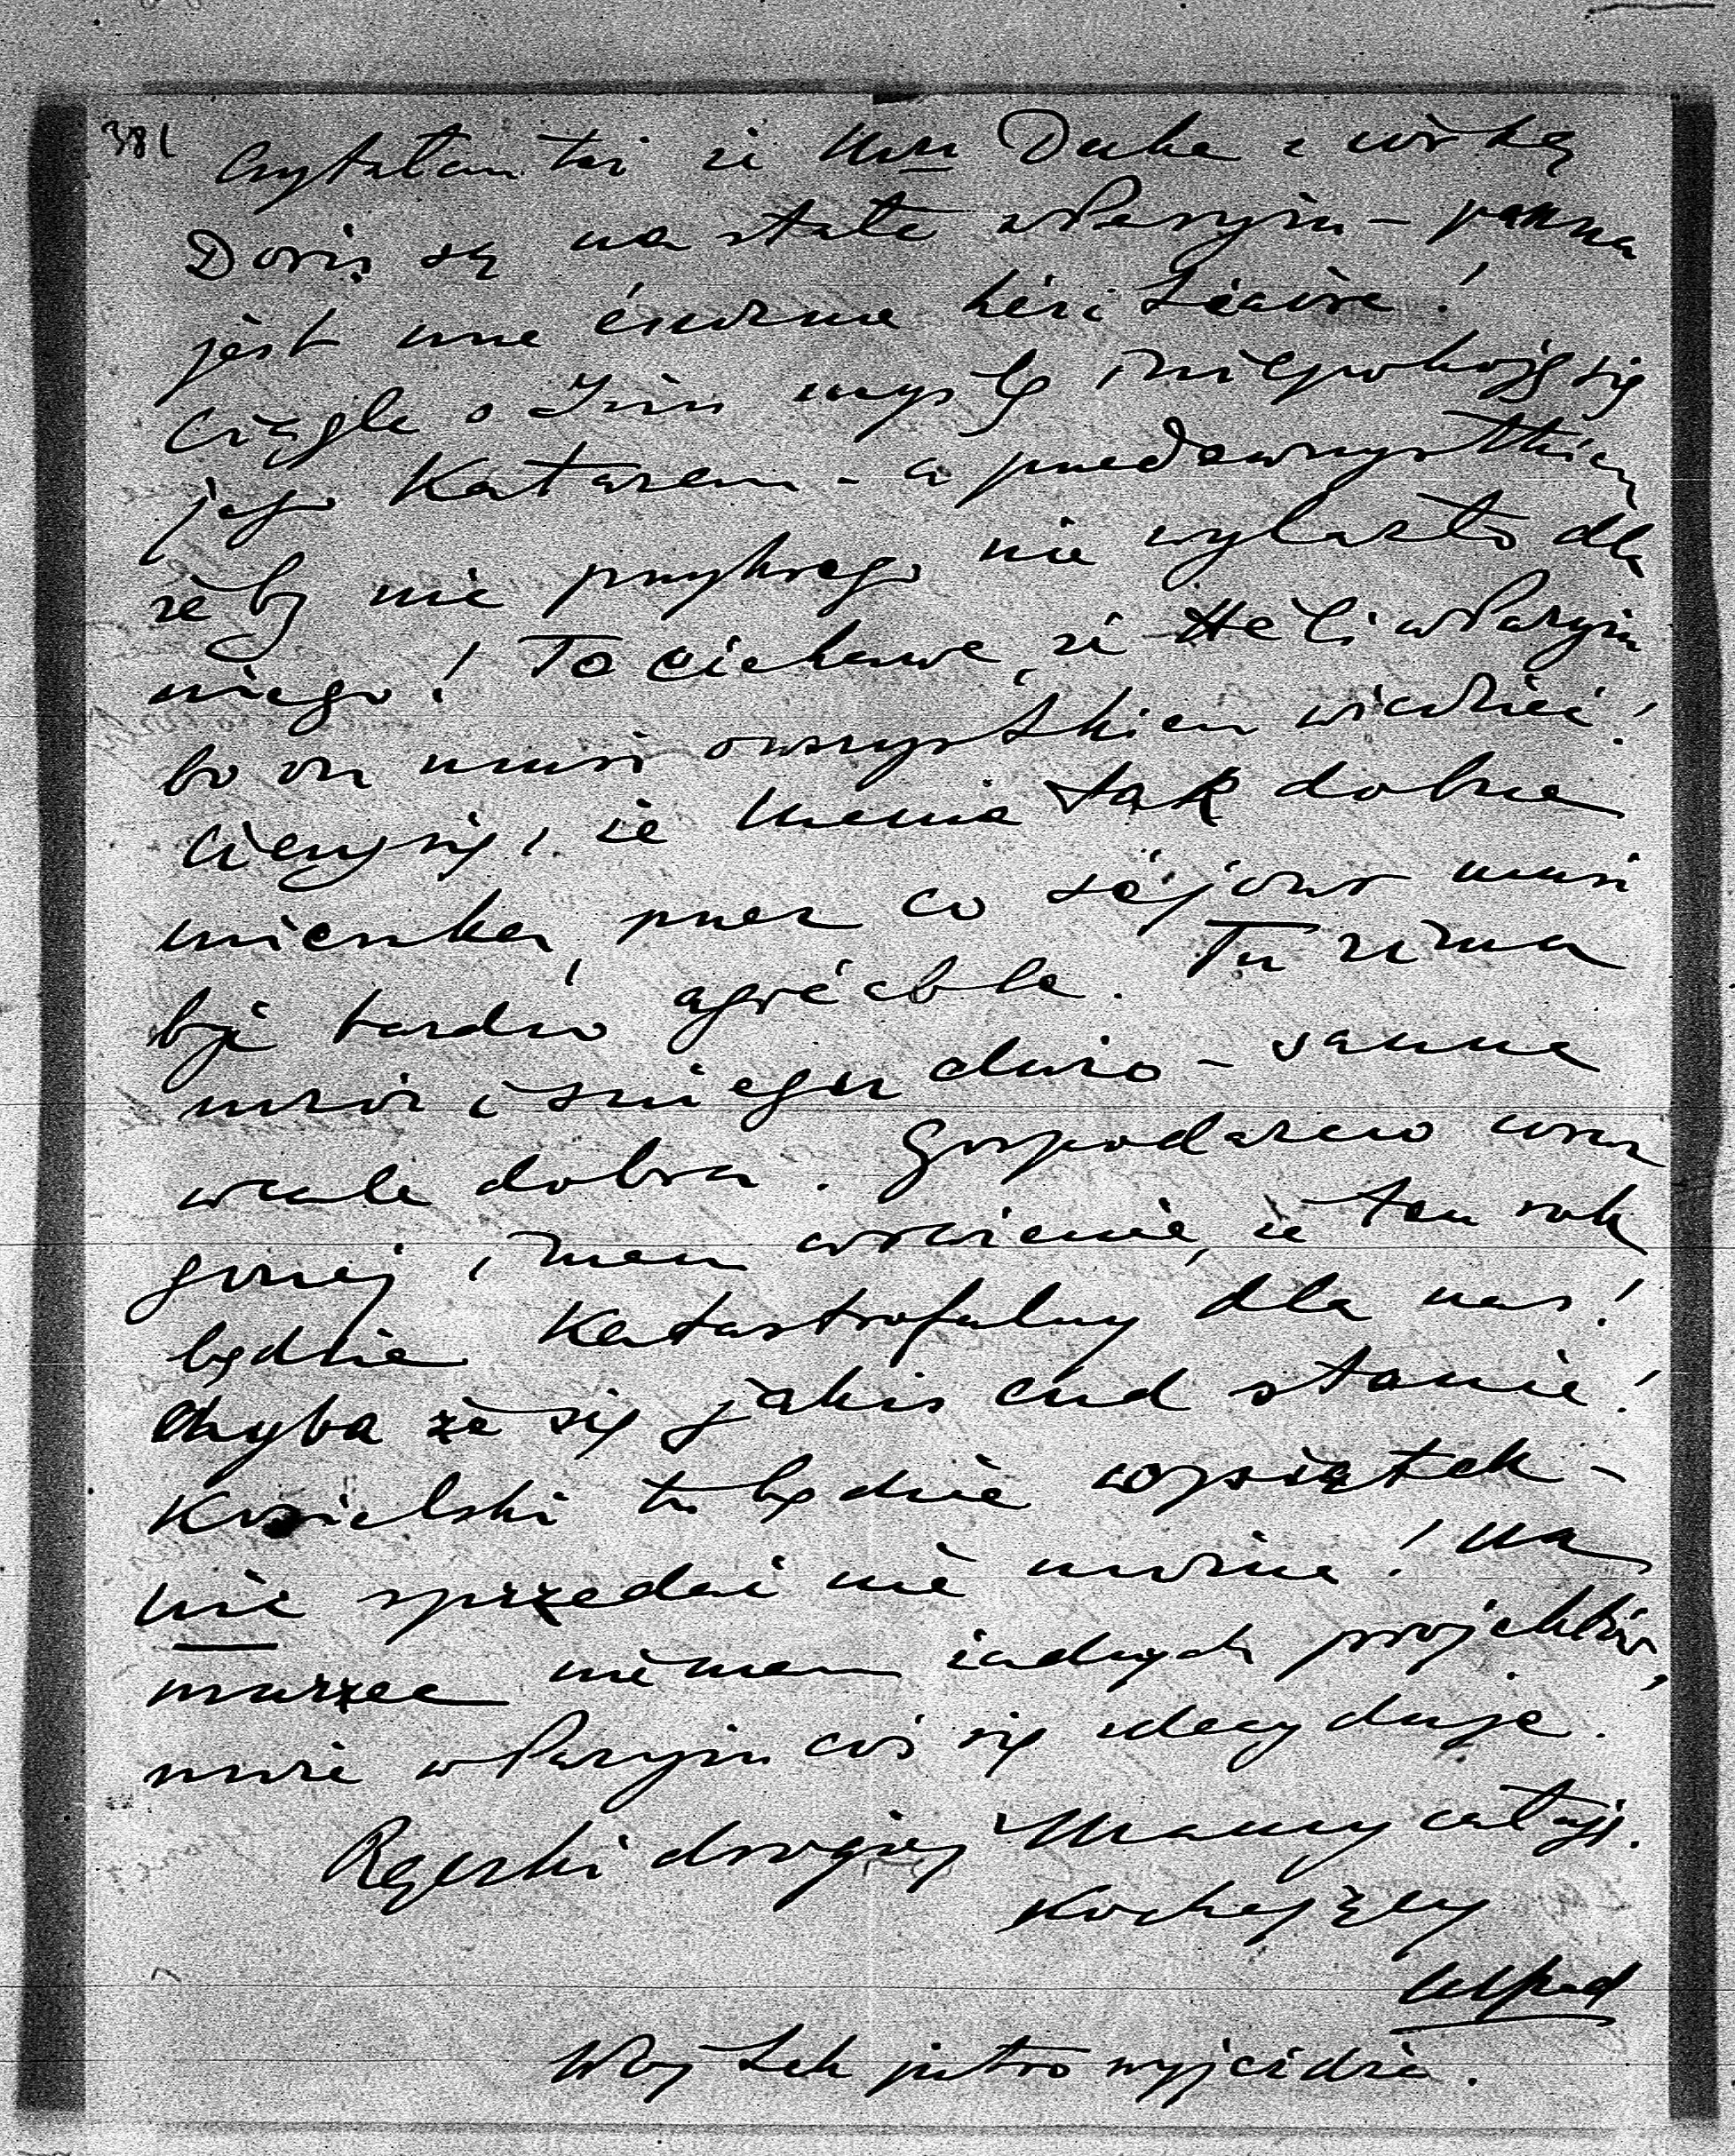 381
Czytałam też że Mrs Duke z córką
Doris są na stałe w Paryżu – panna
jest une énorme héritière!
Ciągle o Imię myślę i niepokoję się
jego Katarem – a przedewszystkiem
żeby nic przykrego nie wylazło dla
niego! To ciekawe, że Heli w Paryżu
bo on musi o wszystkiem wiedzieć!
Cieszę się, że Mama tak dobrze
mieszka, przez co séjour musi
być bardzo agréable. Tu zima
mróz i śniegu dużo – sanna
wcale dobra. Gospodarczo coraz
gorzej, mam wrażenie, że ten rok
będzie Katastrofalny dla nas!
Chyba że się jakiś cud stanie!
Kozielski to będzie wyjątek –
nic sprzedać nie można! Na
marzec nie mam żadnych projektów,
może w Paryżu coś się zdecyduje.
Rączki drogiej Mamy całuję.
Kochający
Alfred
Wojtek jutro wyjeżdża.